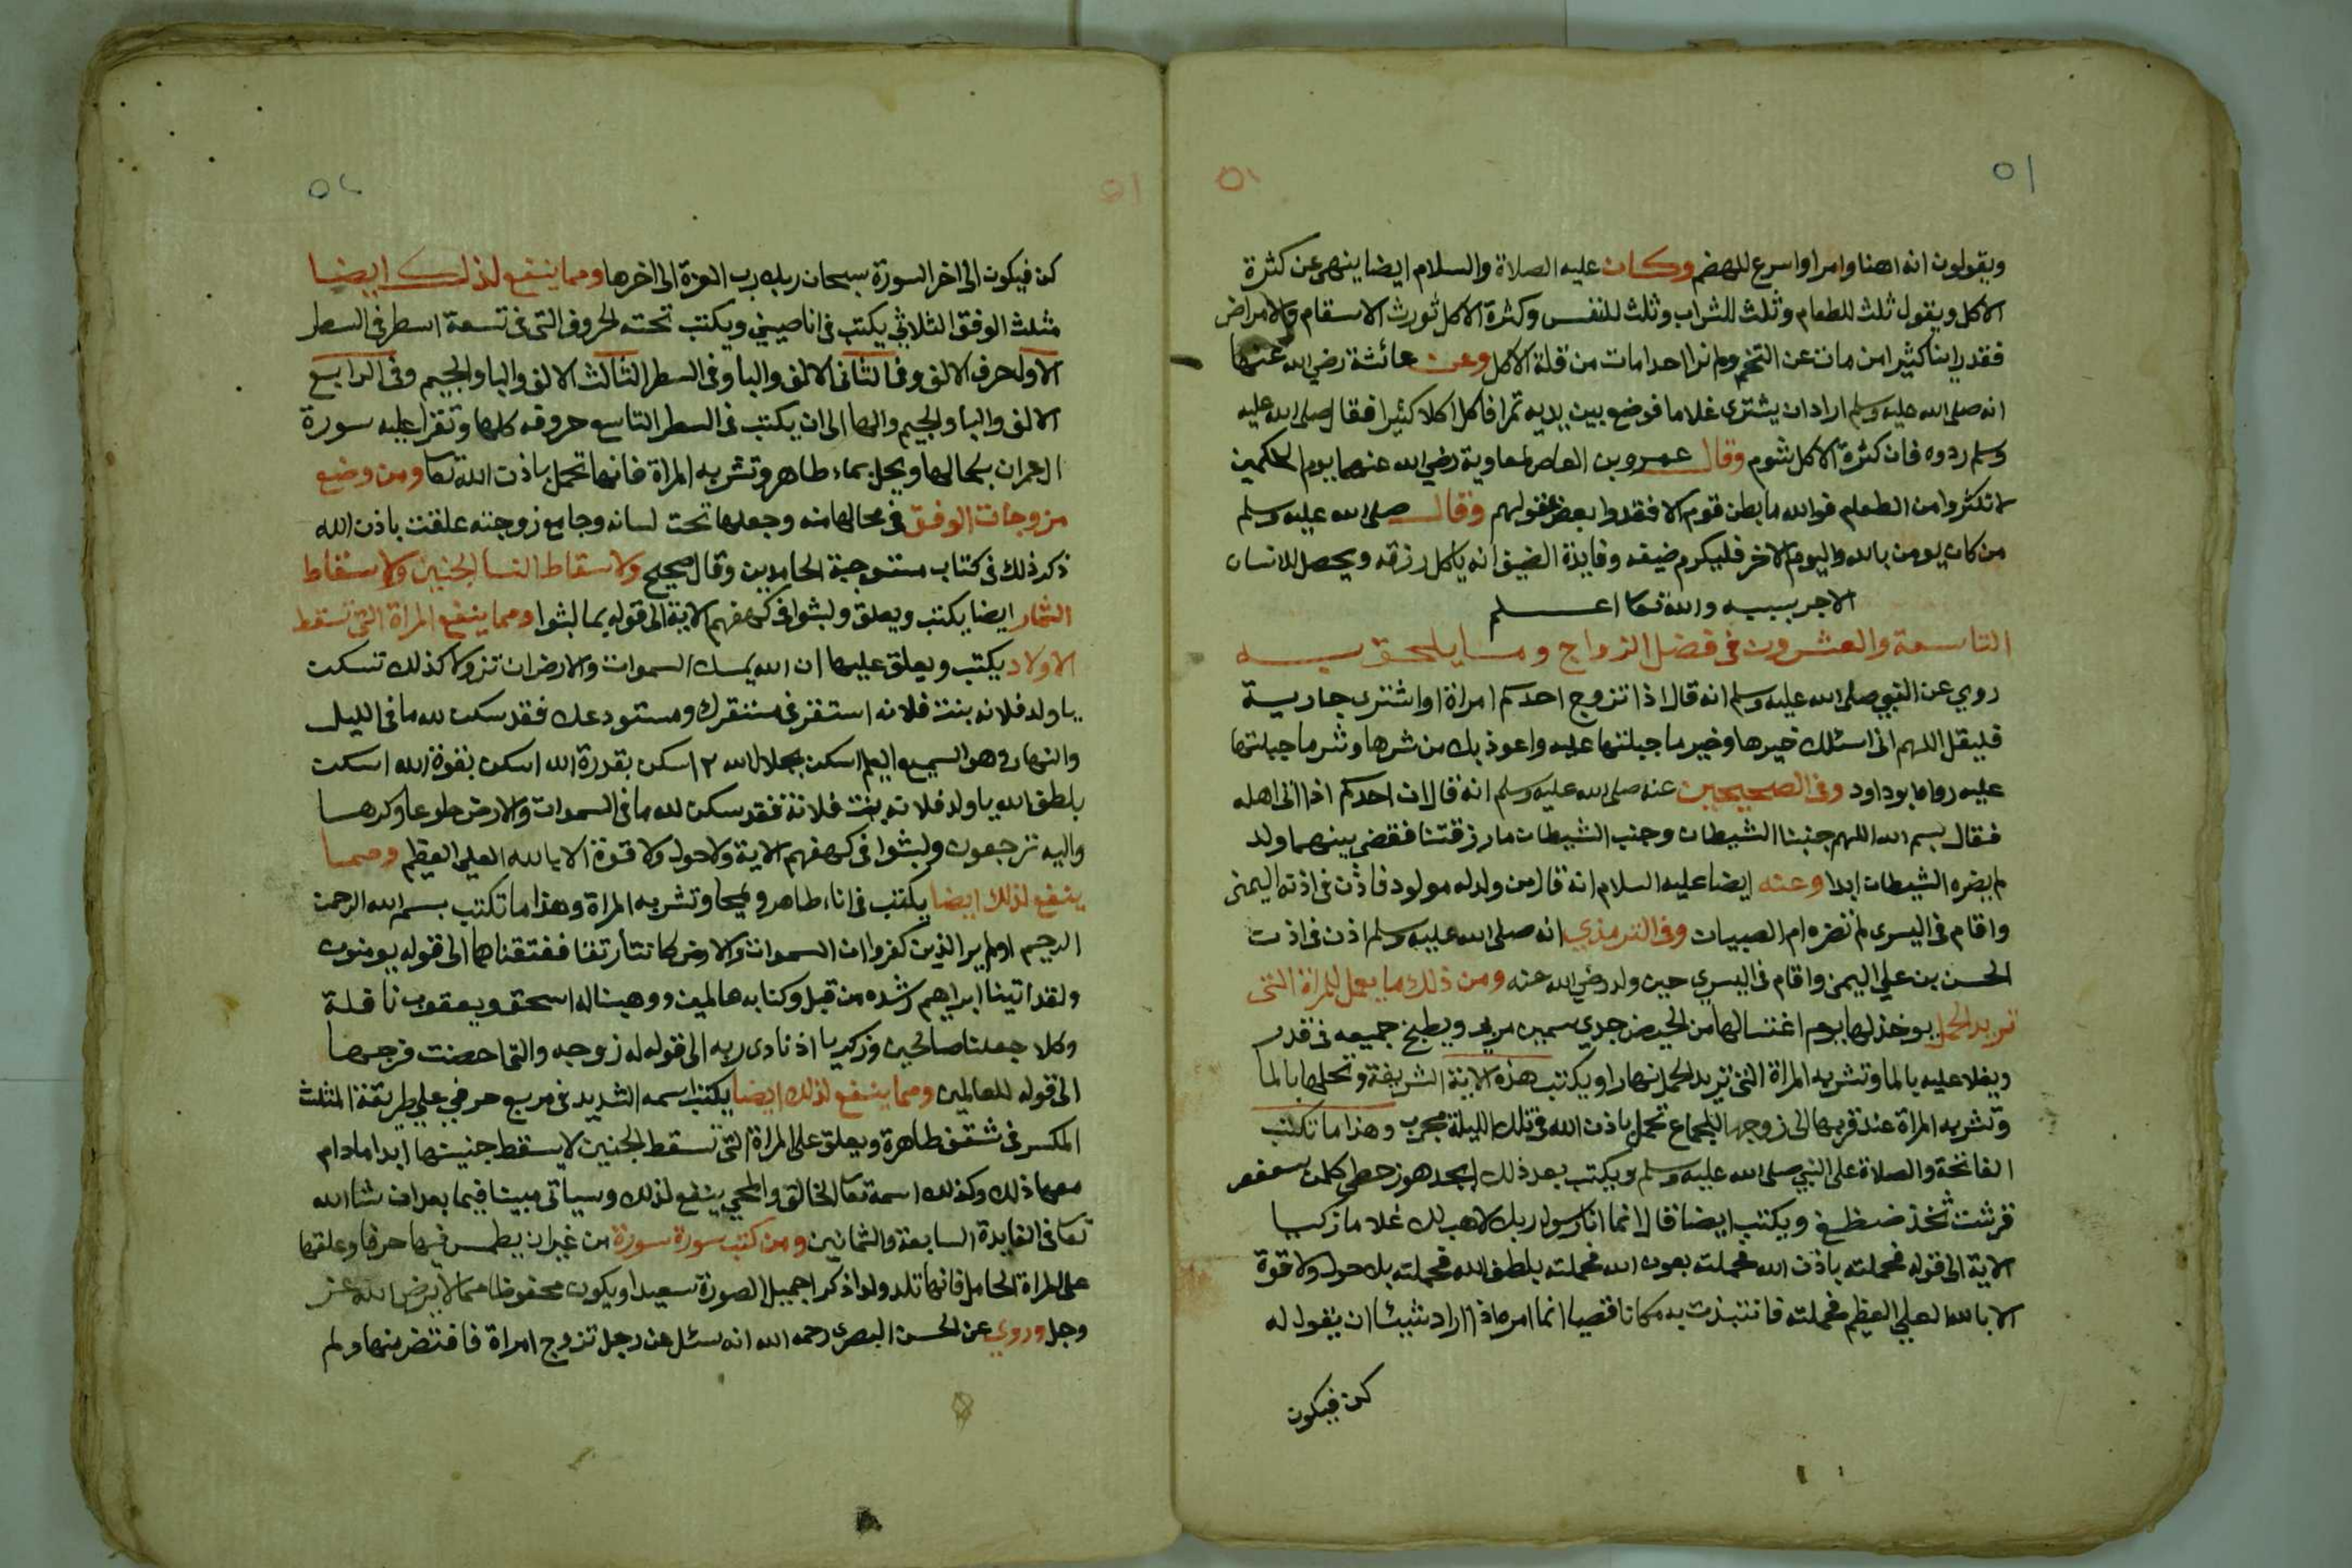 ٥١
٥١
ويقولون انه اهنا وامرا واسرع للهضم وكان عليه الصلاة والسلام ايضا ينهى عن كثرة
الاكل ويقول ثلث للطعام وثلث للشراب وثلث للنفس وكثرة الاكل تورث الاسقام والامراض
فقد راينا كثيرا من مات عن التخم ولم نرا احدا مات من قلة الاكل وعن عائشة رضي الله عنها
انه صلى الله عليه وسلم اراد ان يشترى غلاما فوضع بين يديه تمرا فاكل اكلا كثيرا فقال صلى الله عليه
وسلم ردوه فان كثرة الاكل شوم وقال عمرو بن العاص لمعاوية رضي الله عنهما يوم الحكمين
لا تكثروا من الطعام فوالله ما بطن قوم الا فقدوا بعض عقولهم وقال صلى الله عليه وسلم
من كان يومن بالله واليوم الاخر فليكرم ضيفه وفايدة الضيف انه ياكل رزقه ويحصل للانسان
الاجر بسببه والله تعا اعلم
التاسعة والعشرون فى فضل الزواج وما يلحق به
روي عن النبي صلى الله عليه وسلم انه قال اذا تزوج احدكم امراة او اشترى جارية
فليقل اللهم انى اسئلك خيرها وخير ما جبلتها عليه واعوذ بك من شرها وشر ما جبلتها
عليه رواه ابو داود وفى الصحيحين عنه صلى الله عليه وسلم انه قال ان احدكم اذا اتى اهله
فقال بسم الله اللهم جنبنا الشيطان وجنب الشيطان ما رزقتنا فقضى بينهما ولد
لم يضره الشيطان ابدا وعنه ايضا عليه السلام انه قال من ولد له مولود فاذن فى اذنه اليمنى
واقام فى اليسرى لم تضره ام الصبيان وفى الترمذي انه صلى الله عليه وسلم اذن فى اذن
الحسن بن علي اليمنى واقام فى اليسري حين ولد رضي الله عنه ومن ذلك ما يعمل للمراة التى
تريد الحمل يوخذ لها يوم اغتسالها من الحيض جدي سمين مربى ويطبخ جميعه فى قدر
ويغلا عليه بالما وتشربه المراة التى تريد الحمل نهارا ويكتب هذه الاية الشريفة وتحلها بالما
وتشربه المراة عند قربها الى زوجها للجماع تحمل باذن الله فى تلك الليلة مجرب وهذا ما تكتب
الفاتحة والصلاة على النبي صلى الله عليه وسلم ويكتب بعد ذلك ابجد هوز حطي كلمن سعفص
قرشت ثخذ ضظغ ويكتب ايضا قال انما انا رسول ربك لاهب لك غلاما زكيا
الاية الى قوله فحملته باذن الله فحملته بعون الله فحملته بلطف الله فحملته بلا حول ولا قوة
الا بالله العلي العظيم فحملته فانتبذت به مكانا قصيا انما امره اذا اراد شيئا ان يقول له
كن فيكون
٥٢
٥١
كن فيكون الى اخر السورة سبحان ربك رب العزة الى اخرها ومما ينفع لذلك ايضا
مثلث الوفق الثلاثي يكتب فى انا صيني ويكتب تحته الحروف التى فى تسعة اسطر فى السطر
الاول حرف الالف وفى الثانى الالف والبا وفى السطر الثالث الالف والبا والجيم وفى الرابع
الالف والبا والجيم والها الى ان يكتب فى السطر التاسع حروفه كلها وتقرا عليه سورة
ال عمران بكمالها ويحل بماء طاهر وتشربه المراة فانها تحمل باذن الله تعا ومن وضع
مزوجات الوفق فى محالها منه وجعلها تحت لسانه وجامع زوجته علقت باذن الله
ذكر ذلك فى كتاب مستوجبة الحامدين وقال صحيح ولاسقاط النسا الجنين ولاسقاط
الثمار ايضا يكتب ويعلق ولبثوا فى كهفهم الاية الى قوله بما لبثوا ومما ينفع المراة التى تسقط
الاولاد يكتب ويعلق عليها ان الله يمسك السموات والارض ان تزولا كذلك تسكت
يا ولد فلانه بنت فلانه استقر فى مستقرك ومستودعك فقد سكن لله ما فى الليل
والنهار وهو السميع العليم اسكن بجلال الله ٢ اسكن بقدرة الله اسكن بقوة الله اسكت
بلطف الله يا ولد فلانه بنت فلانة فقد سكن لله ما فى السموات والارض طوعا وكرها
واليه ترجعون ولبثوا فى كهفهم الاية ولا حول ولا قوة الا بالله العلي العظيم ومما
ينفع لذلك ايضا يكتب فى اناء طاهر ويمحا وتشربه المراة وهذا ما تكتب بسم الله الرحمن
الرحيم اولم ير الذين كفروا ان السموات والارض كانتا رتقا ففتقناهما الى قوله يومنون
ولقد اتينا ابراهيم رشده من قبل وكنا به عالمين ووهبنا له اسحق ويعقوب نافلة
وكلا جعلنا صالحين وزكريا اذ نادى ربه الى قوله له زوجه والتى احصنت فرجها
الى قوله للعالمين ومما ينفع لذلك ايضا يكتب اسمه الشديد فى مربع حرفي على طريقة المثلث
المكسر فى شقف طاهرة ويعلق على المراة التى تسقط الجنين لا يسقط جنينها ابدا ما دام
معها ذلك وكذلك اسمه تعا الخالق والمحيي ينفع لذلك وسياتى مبينا فيما بعد ان شا الله
تعا فى الفايدة السابعة والثمانين ومن كتب سورة سورة من غير ان يطمس فيها حرفا وعلقها
على المراة الحامل فانها تلد ولدا ذكرا جميل الصورة سعيدا ويكون محفوظا مما لا يرضى الله عز
وجل وروي عن الحسن البصرى رحمه الله انه سئل عن رجل تزوج امراة فافتض منها ولم